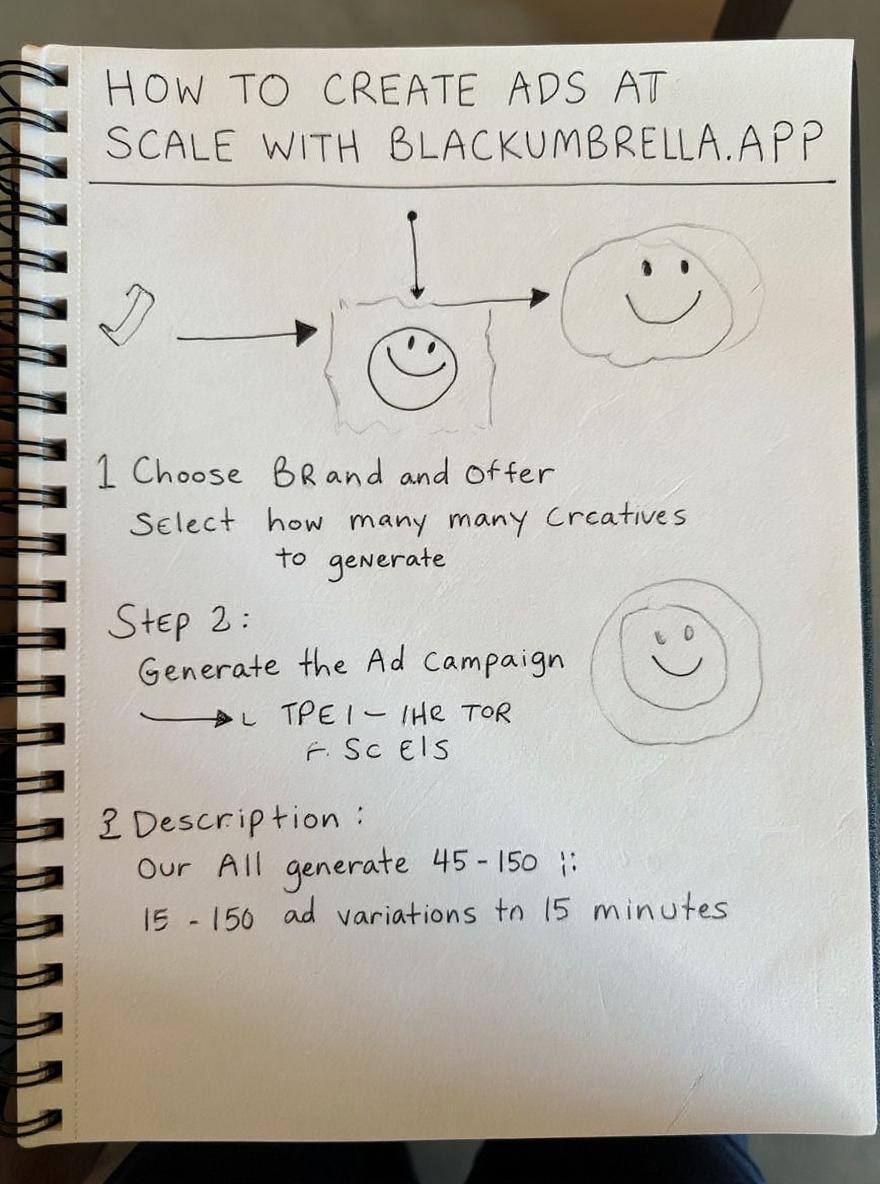 HOW TO CREATE ADS AT
SCALE WITH BLACKUMBRELLA.APP
1 Choose BRand and Offer
Select how many many Creatives
to generate
Step 2:
Generate the Ad Campaign
L TPE 1 - 1HR TOR
F. Sc EIS
Description:
Our All generate 45-150
15 - 150 ad variations tn 15 minutes